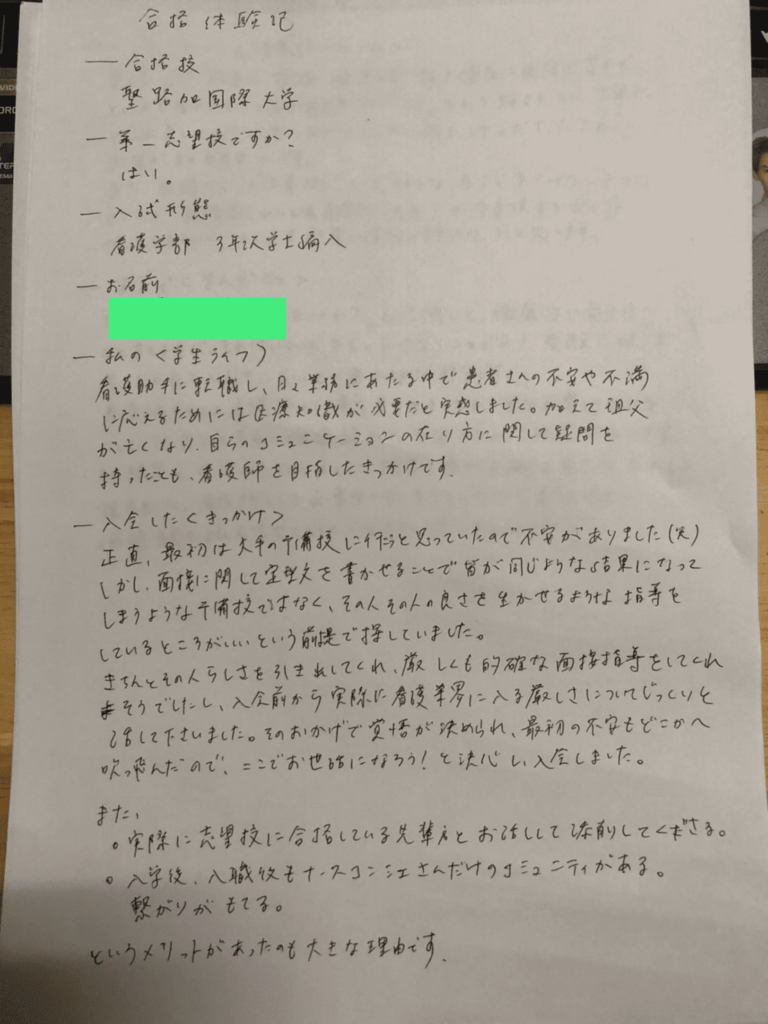 合格体験記
― 合格校
聖路加国際大学
― 第一志望校ですか?
はい。
― 入試形態
看護学部 3年次学士編入
― お名前
― 私の〈学生ライフ〉
看護助手に転職し、日々業務にあたる中で患者さんへの不安や不満
に応えるためには医療知識が必要だと実感しました。加えて祖父
が亡くなり、自らのコミュニケーションの在り方に関して疑問を
持ったことも、看護師を目指したきっかけです。
― 入会した〈きっかけ〉
正直、最初は大手の予備校に行こうと思っていたので不安がありました(笑)
しかし、面接に関して定型文を書かせることで皆が同じような結果になって
しまうような予備校ではなく、その人その人の良さを生かせるような指導を
しているところがいいという前提で探していました。
きちんとその人らしさを引き出してくれ、厳しくも的確な面接指導をしてくれ
そうでしたし、入会前から実際に看護業界に入る厳しさについてじっくりと
話して下さいました。そのおかげで覚悟が決められ、最初の不安もどこかへ
吹っ飛んだので、ここでお世話になろう!と決心し、入会しました。
また、
○実際に志望校に合格している先輩方とお話しして添削してくださる。
○入学後、入職後もナースコンシェさんだけのコミュニティがある。
繋がりがもてる。
というメリットがあったのも大きな理由です。